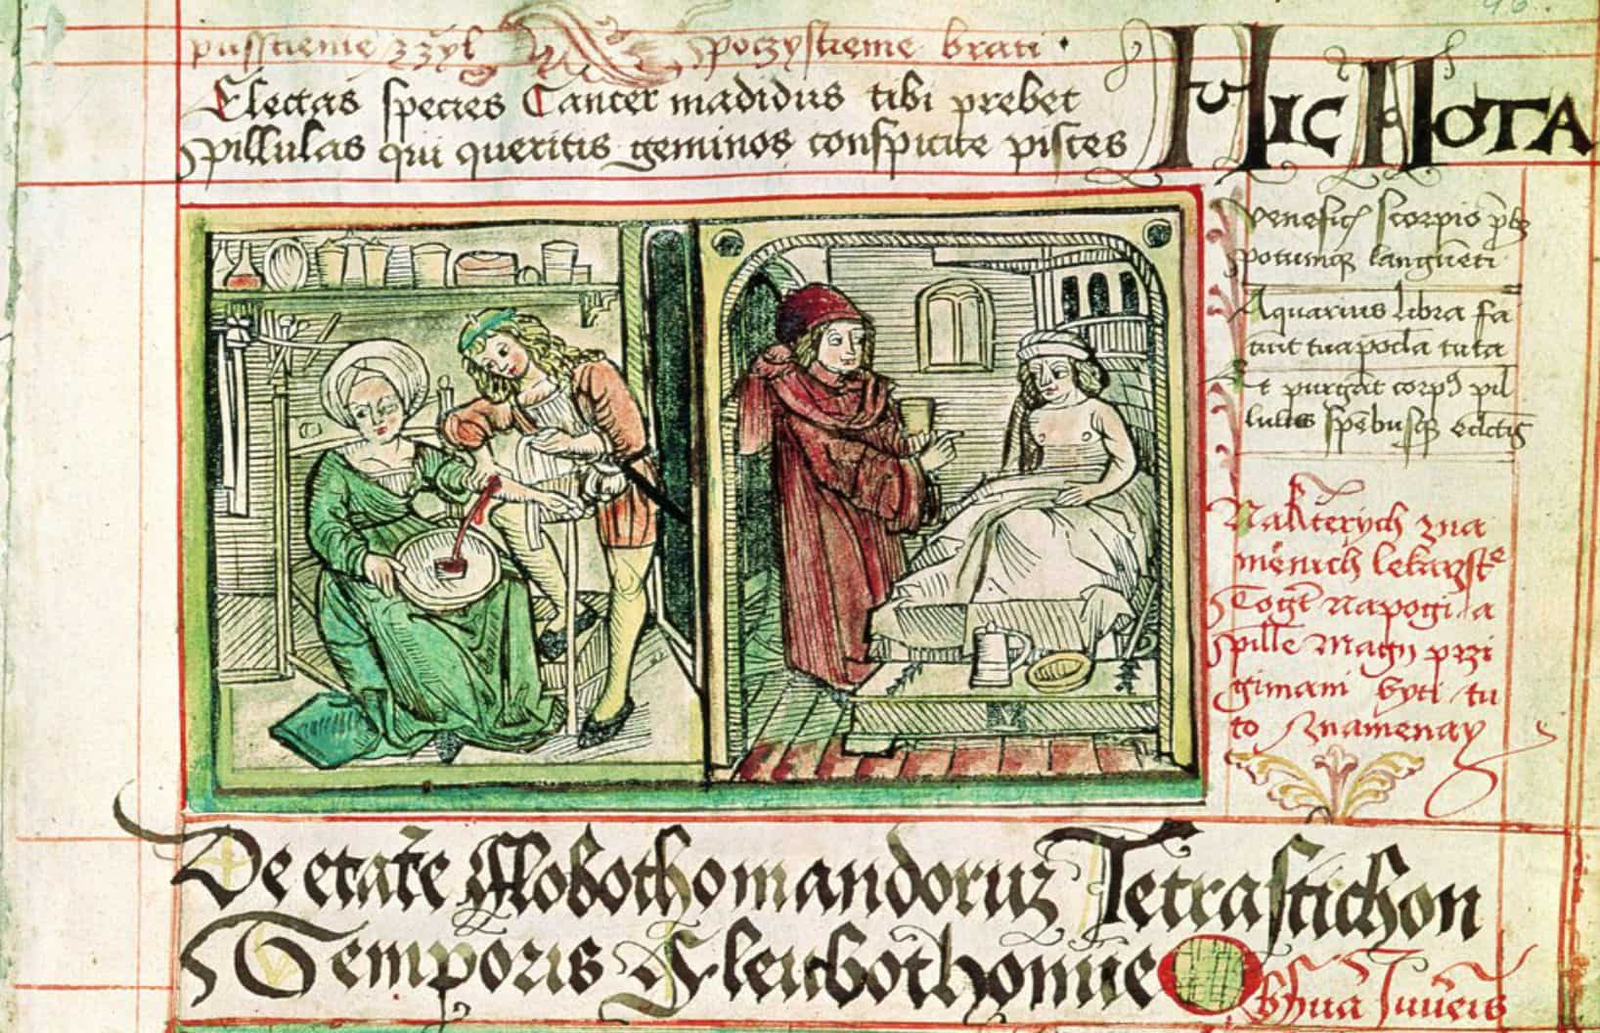 pusstienie zzyl
poczystieme brati
Electas species Cancer madidus tibi prebet
Pillulas qui queritis geminos conspicite pisces
Hic Nota
Scorpio
potumq languenti
Aquarius libra fa
tuta
Et purgat corp9 pil
Nakterych zna
menich lekarzste
Togt napogi a
pille magy przi
gimani byti tu
to znamenay
De etate flobothomandoruz Tetrastichon
Temporis Fleubothomie